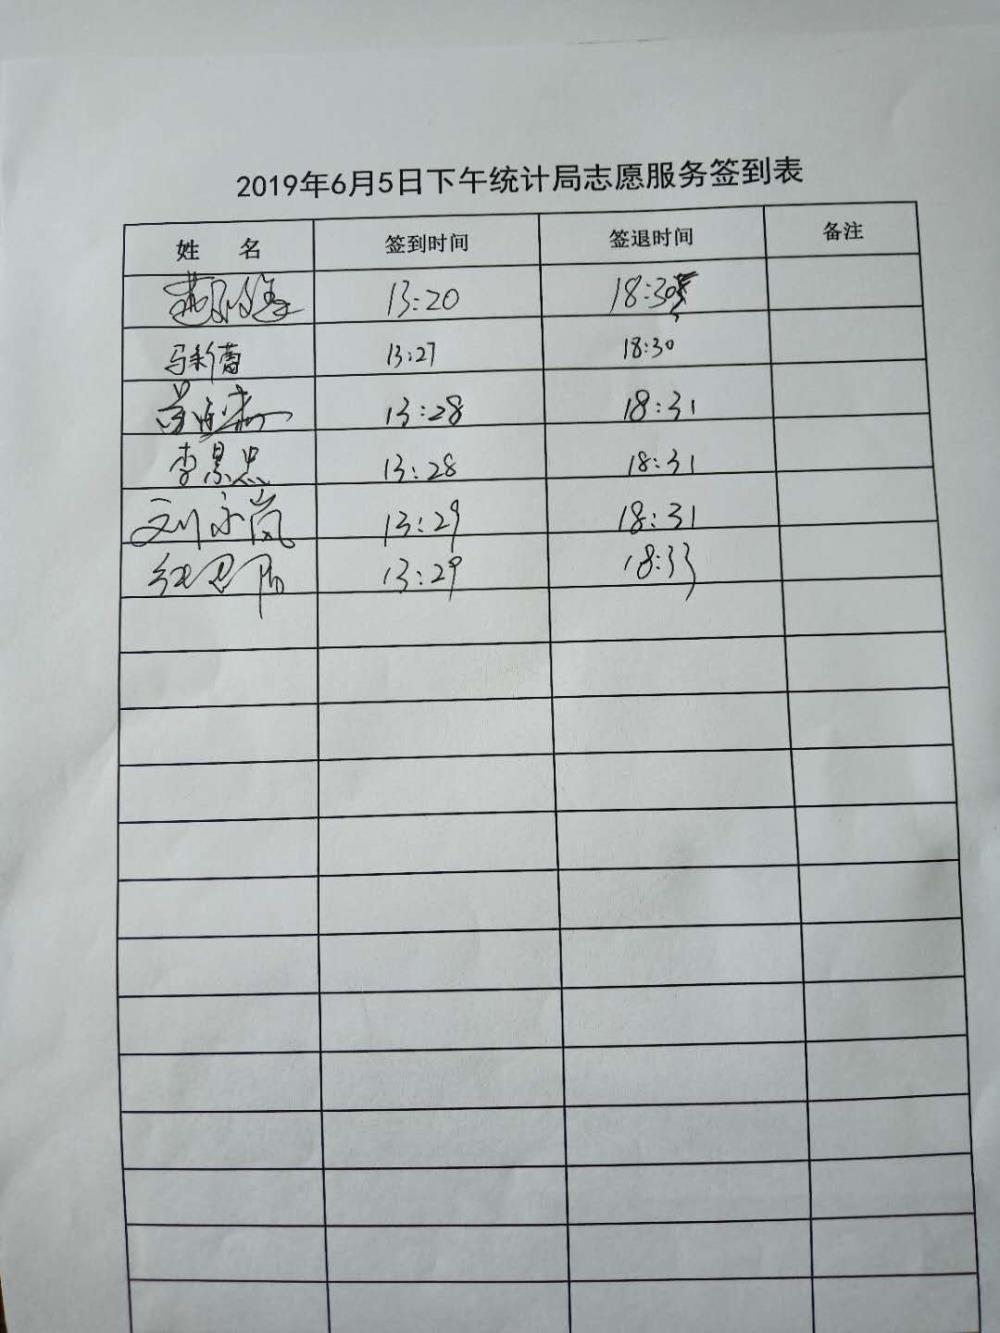 2019年6月5日下午统计局志愿服务签到表
姓 名 签到时间 签退时间 备注
13:20 18:30
马新蕾 13:27 18:30
13:28 18:31
李景忠 13:28 18:31
刘永岚 13:29 18:31
13:29 18:33